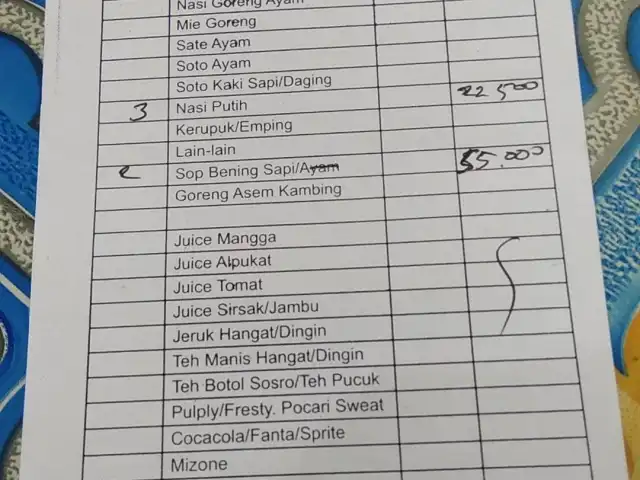 Nasi Goreng Ayam
Mie Goreng
Sate Ayam
Soto Ayam
Soto Kaki Sapi/Daging
3 Nasi Putih 22 500
Kerupuk/Emping
Lain-lain
2 Sop Bening Sapi/Ayam 55.000
Goreng Asem Kambing
Juice Mangga
Juice Alpukat
Juice Tomat
Juice Sirsak/Jambu
Jeruk Hangat/Dingin
Teh Manis Hangat/Dingin
Teh Botol Sosro/Teh Pucuk
Pulply/Fresty. Pocari Sweat
Cocacola/Fanta/Sprite
Mizone